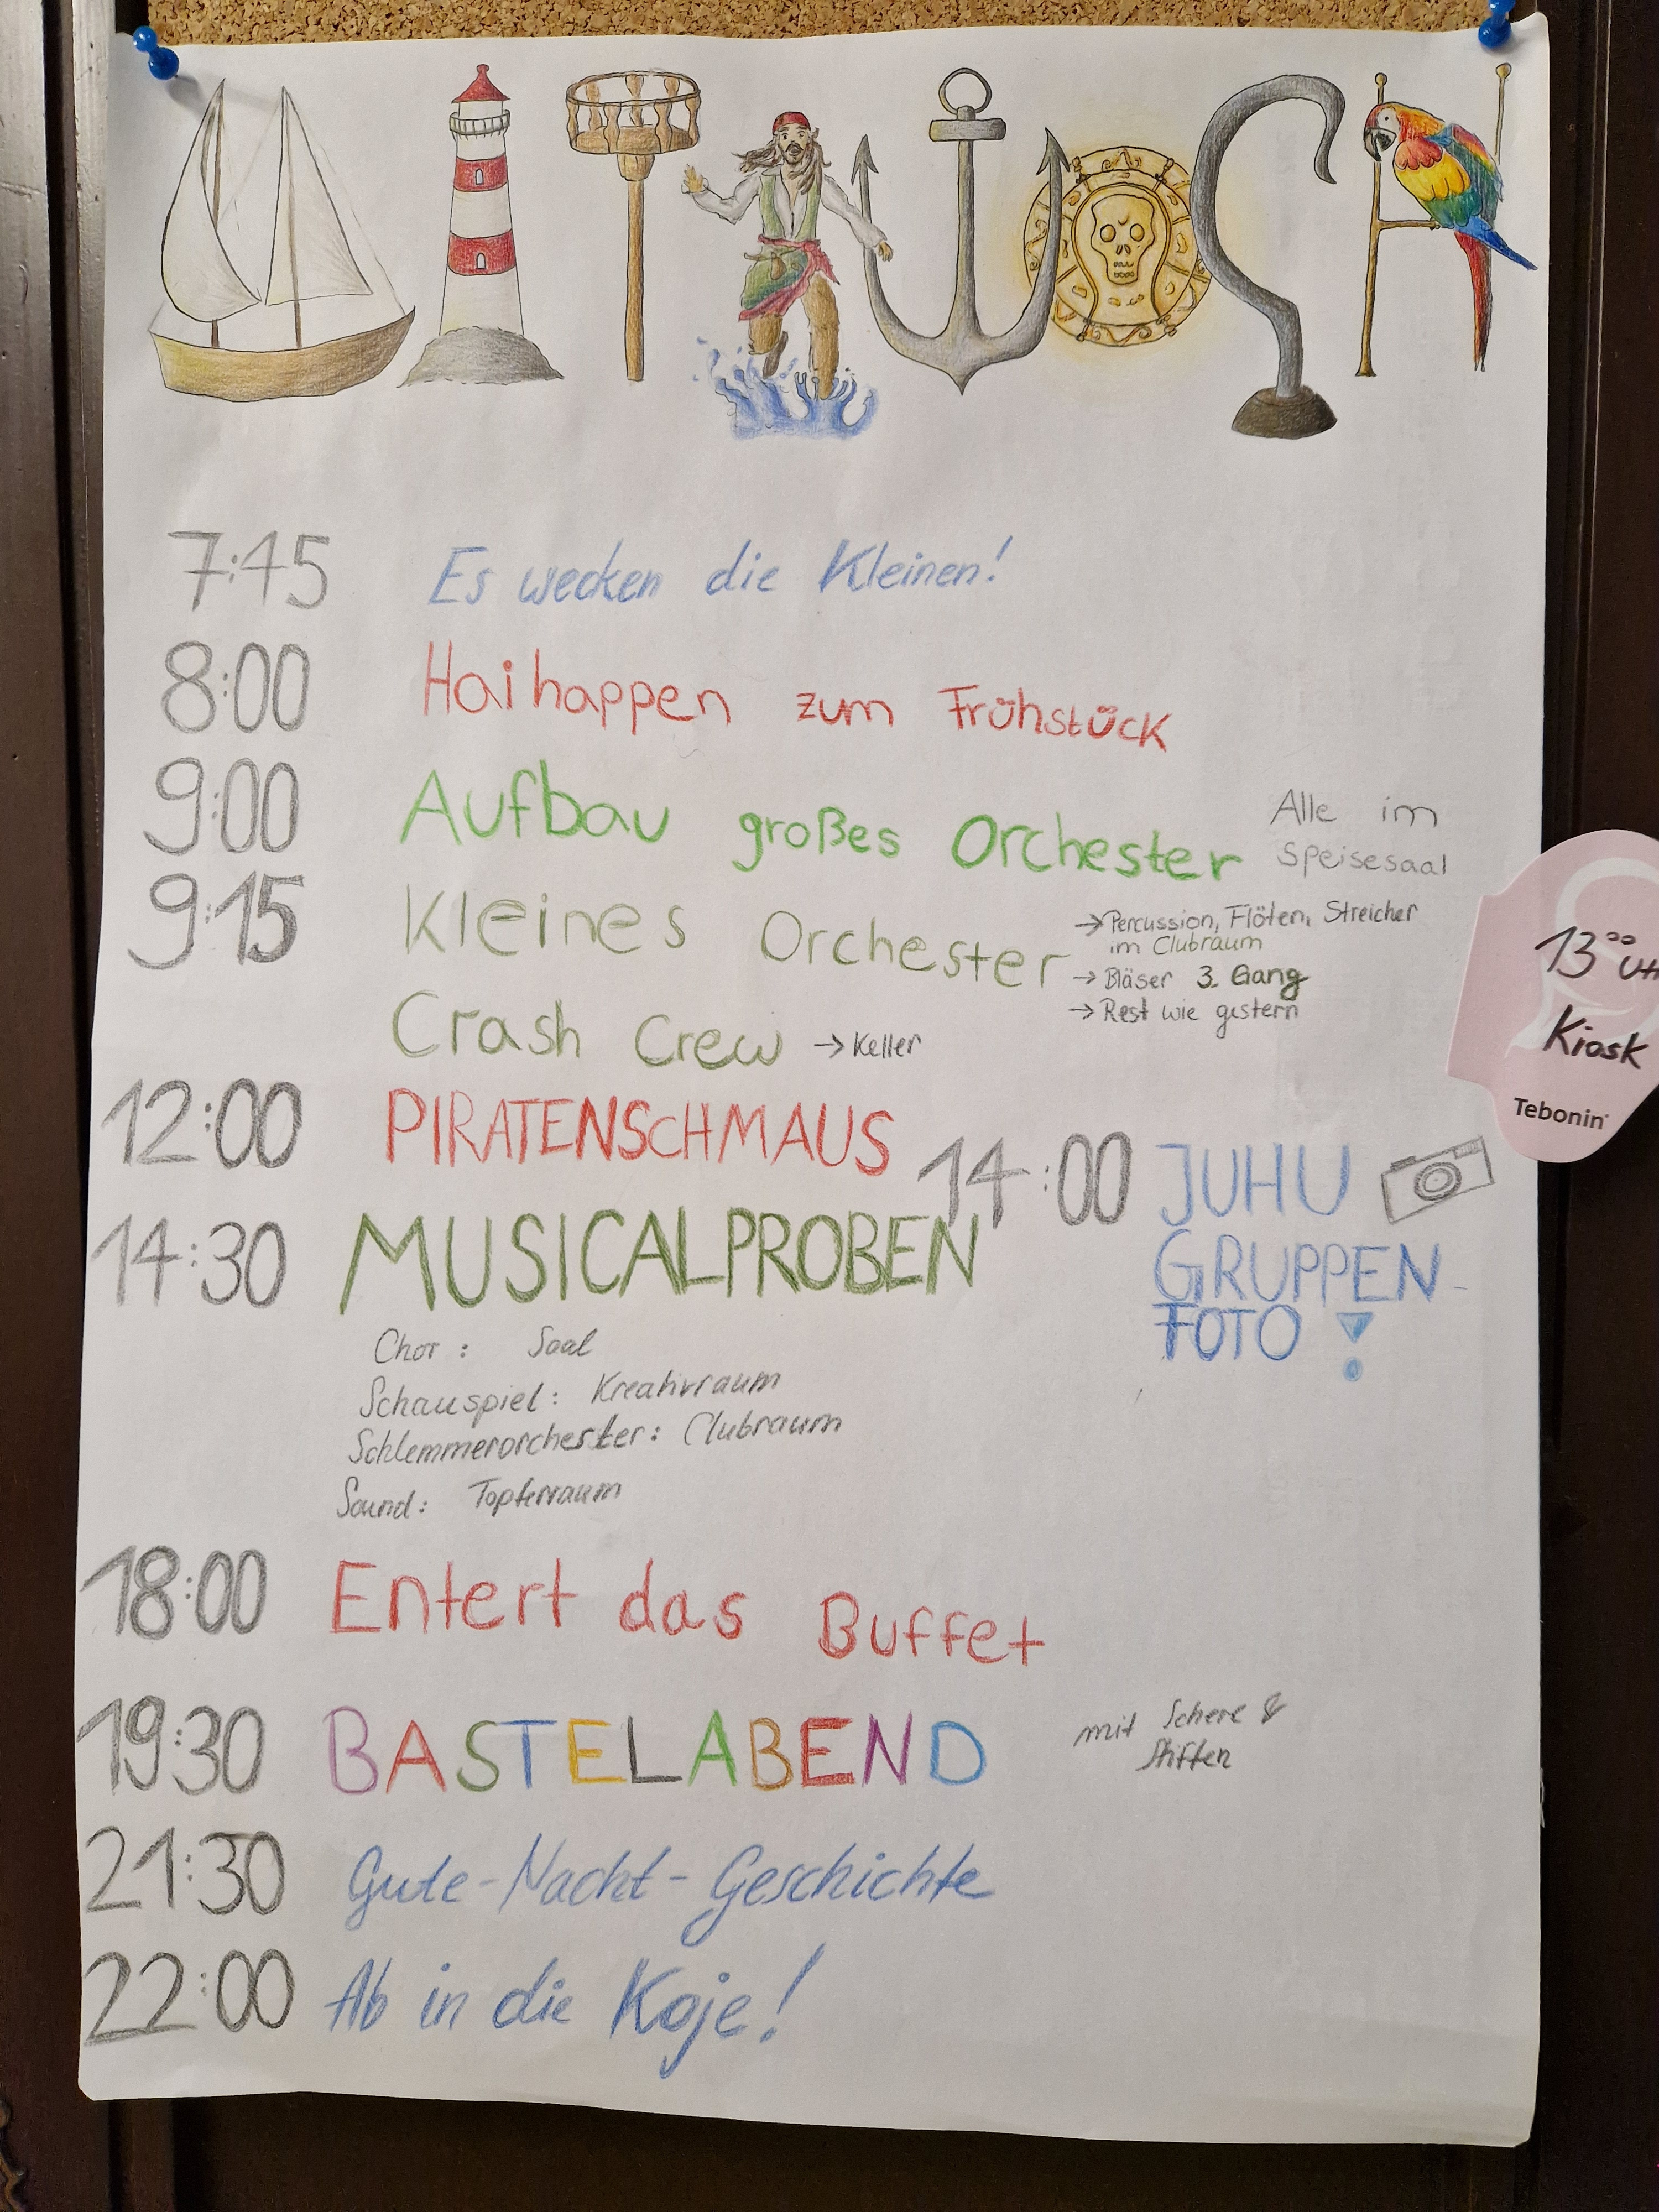 MITTWOCH
7:45 Es wecken die Kleinen!
8:00 Haihappen zum Frühstück
9:00 Aufbau großes Orchester Alle im
Speisesaal
9:15 Kleines Orchester → Percussion, Flöten, Streicher
im Clubraum
→ Bläser 3. Gang
→ Rest wie gestern
Crash Crew → Keller
12:00 PIRATENSCHMAUS
13⁰⁰ UH
Kiosk
Tebonin®
14:00 JUHU
GRUPPEN-
FOTO !
14:30 MUSICALPROBEN
Chor : Saal
Schauspiel: Kreativraum
Schlemmerorchester: Clubraum
Sound: Topferraum
18:00 Entert das Buffet
19:30 BASTELABEND mit Schere &
Stiften
21:30 Gute-Nacht-Geschichte
22:00 Ab in die Koje!